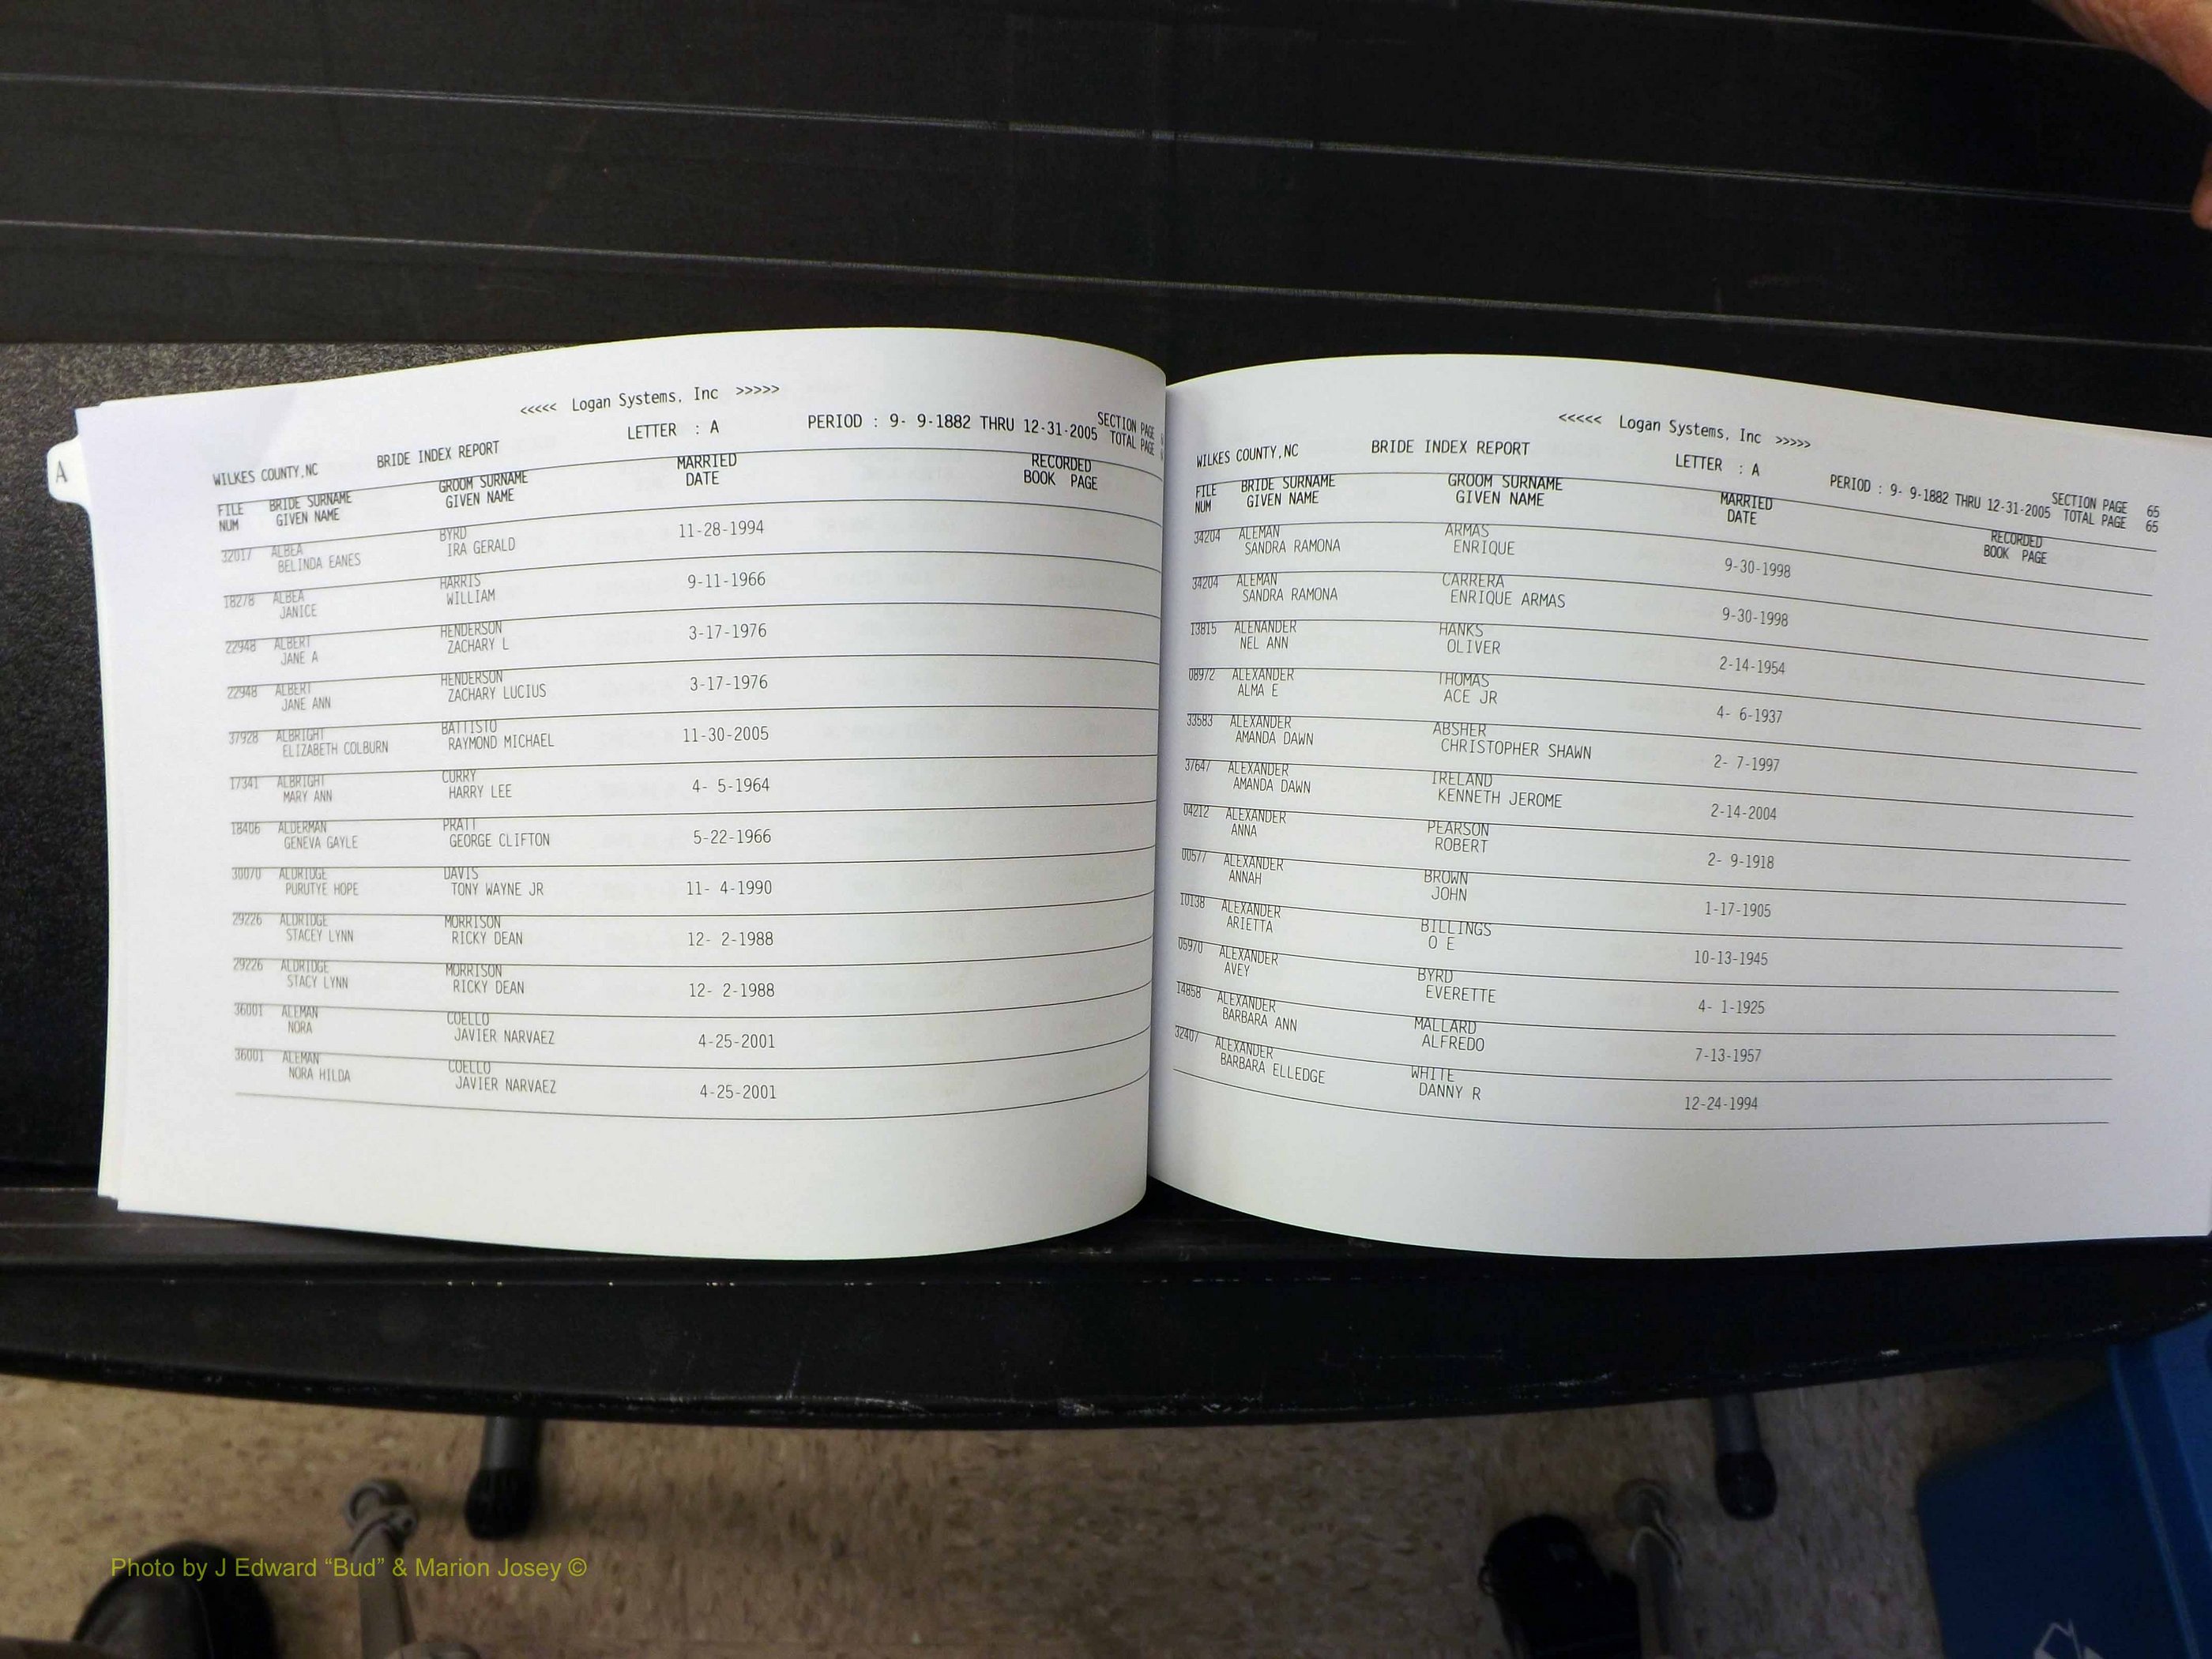 A
<<<<< Logan Systems, Inc >>>>>
WILKES COUNTY,NC BRIDE INDEX REPORT LETTER : A PERIOD : 9- 9-1882 THRU 12-31-2005 SECTION PAGE
TOTAL PAGE
FILE BRIDE SURNAME GROOM SURNAME MARRIED RECORDED
NUM GIVEN NAME GIVEN NAME DATE BOOK PAGE
32017 ALBEA BYRD 11-28-1994
BELINDA EANES IRA GERALD
18278 ALBEA HARRIS 9-11-1966
JANICE WILLIAM
22948 ALBERT HENDERSON 3-17-1976
JANE A ZACHARY L
22948 ALBERT HENDERSON 3-17-1976
JANE ANN ZACHARY LUCIUS
37928 ALBRIGHT BATTISTO 11-30-2005
ELIZABETH COLBURN RAYMOND MICHAEL
17341 ALBRIGHT CURRY 4- 5-1964
MARY ANN HARRY LEE
18406 ALDERMAN PRATT 5-22-1966
GENEVA GAYLE GEORGE CLIFTON
30070 ALDRIDGE DAVIS 11- 4-1990
PURUTYE HOPE TONY WAYNE JR
29226 ALDRIDGE MORRISON 12- 2-1988
STACEY LYNN RICKY DEAN
29226 ALDRIDGE MORRISON 12- 2-1988
STACY LYNN RICKY DEAN
36001 ALEMAN COELLO 4-25-2001
NORA JAVIER NARVAEZ
36001 ALEMAN COELLO 4-25-2001
NORA HILDA JAVIER NARVAEZ
<<<<< Logan Systems, Inc >>>>>
WILKES COUNTY,NC BRIDE INDEX REPORT LETTER : A PERIOD : 9- 9-1882 THRU 12-31-2005 SECTION PAGE 65
TOTAL PAGE 65
FILE BRIDE SURNAME GROOM SURNAME MARRIED RECORDED
NUM GIVEN NAME GIVEN NAME DATE BOOK PAGE
34204 ALEMAN ARMAS 9-30-1998
SANDRA RAMONA ENRIQUE
34204 ALEMAN CARRERA 9-30-1998
SANDRA RAMONA ENRIQUE ARMAS
13815 ALENANDER HANKS 2-14-1954
NEL ANN OLIVER
08972 ALEXANDER THOMAS 4- 6-1937
ALMA E ACE JR
33583 ALEXANDER ABSHER 2- 7-1997
AMANDA DAWN CHRISTOPHER SHAWN
37647 ALEXANDER IRELAND 2-14-2004
AMANDA DAWN KENNETH JEROME
04212 ALEXANDER PEARSON 2- 9-1918
ANNA ROBERT
00577 ALEXANDER BROWN 1-17-1905
ANNAH JOHN
10138 ALEXANDER BILLINGS 10-13-1945
ARIETTA O E
05970 ALEXANDER BYRD 4- 1-1925
AVEY EVERETTE
14858 ALEXANDER MALLARD 7-13-1957
BARBARA ANN ALFREDO
32407 ALEXANDER WHITE 12-24-1994
BARBARA ELLEDGE DANNY R
Photo by J Edward “Bud” & Marion Josey ©